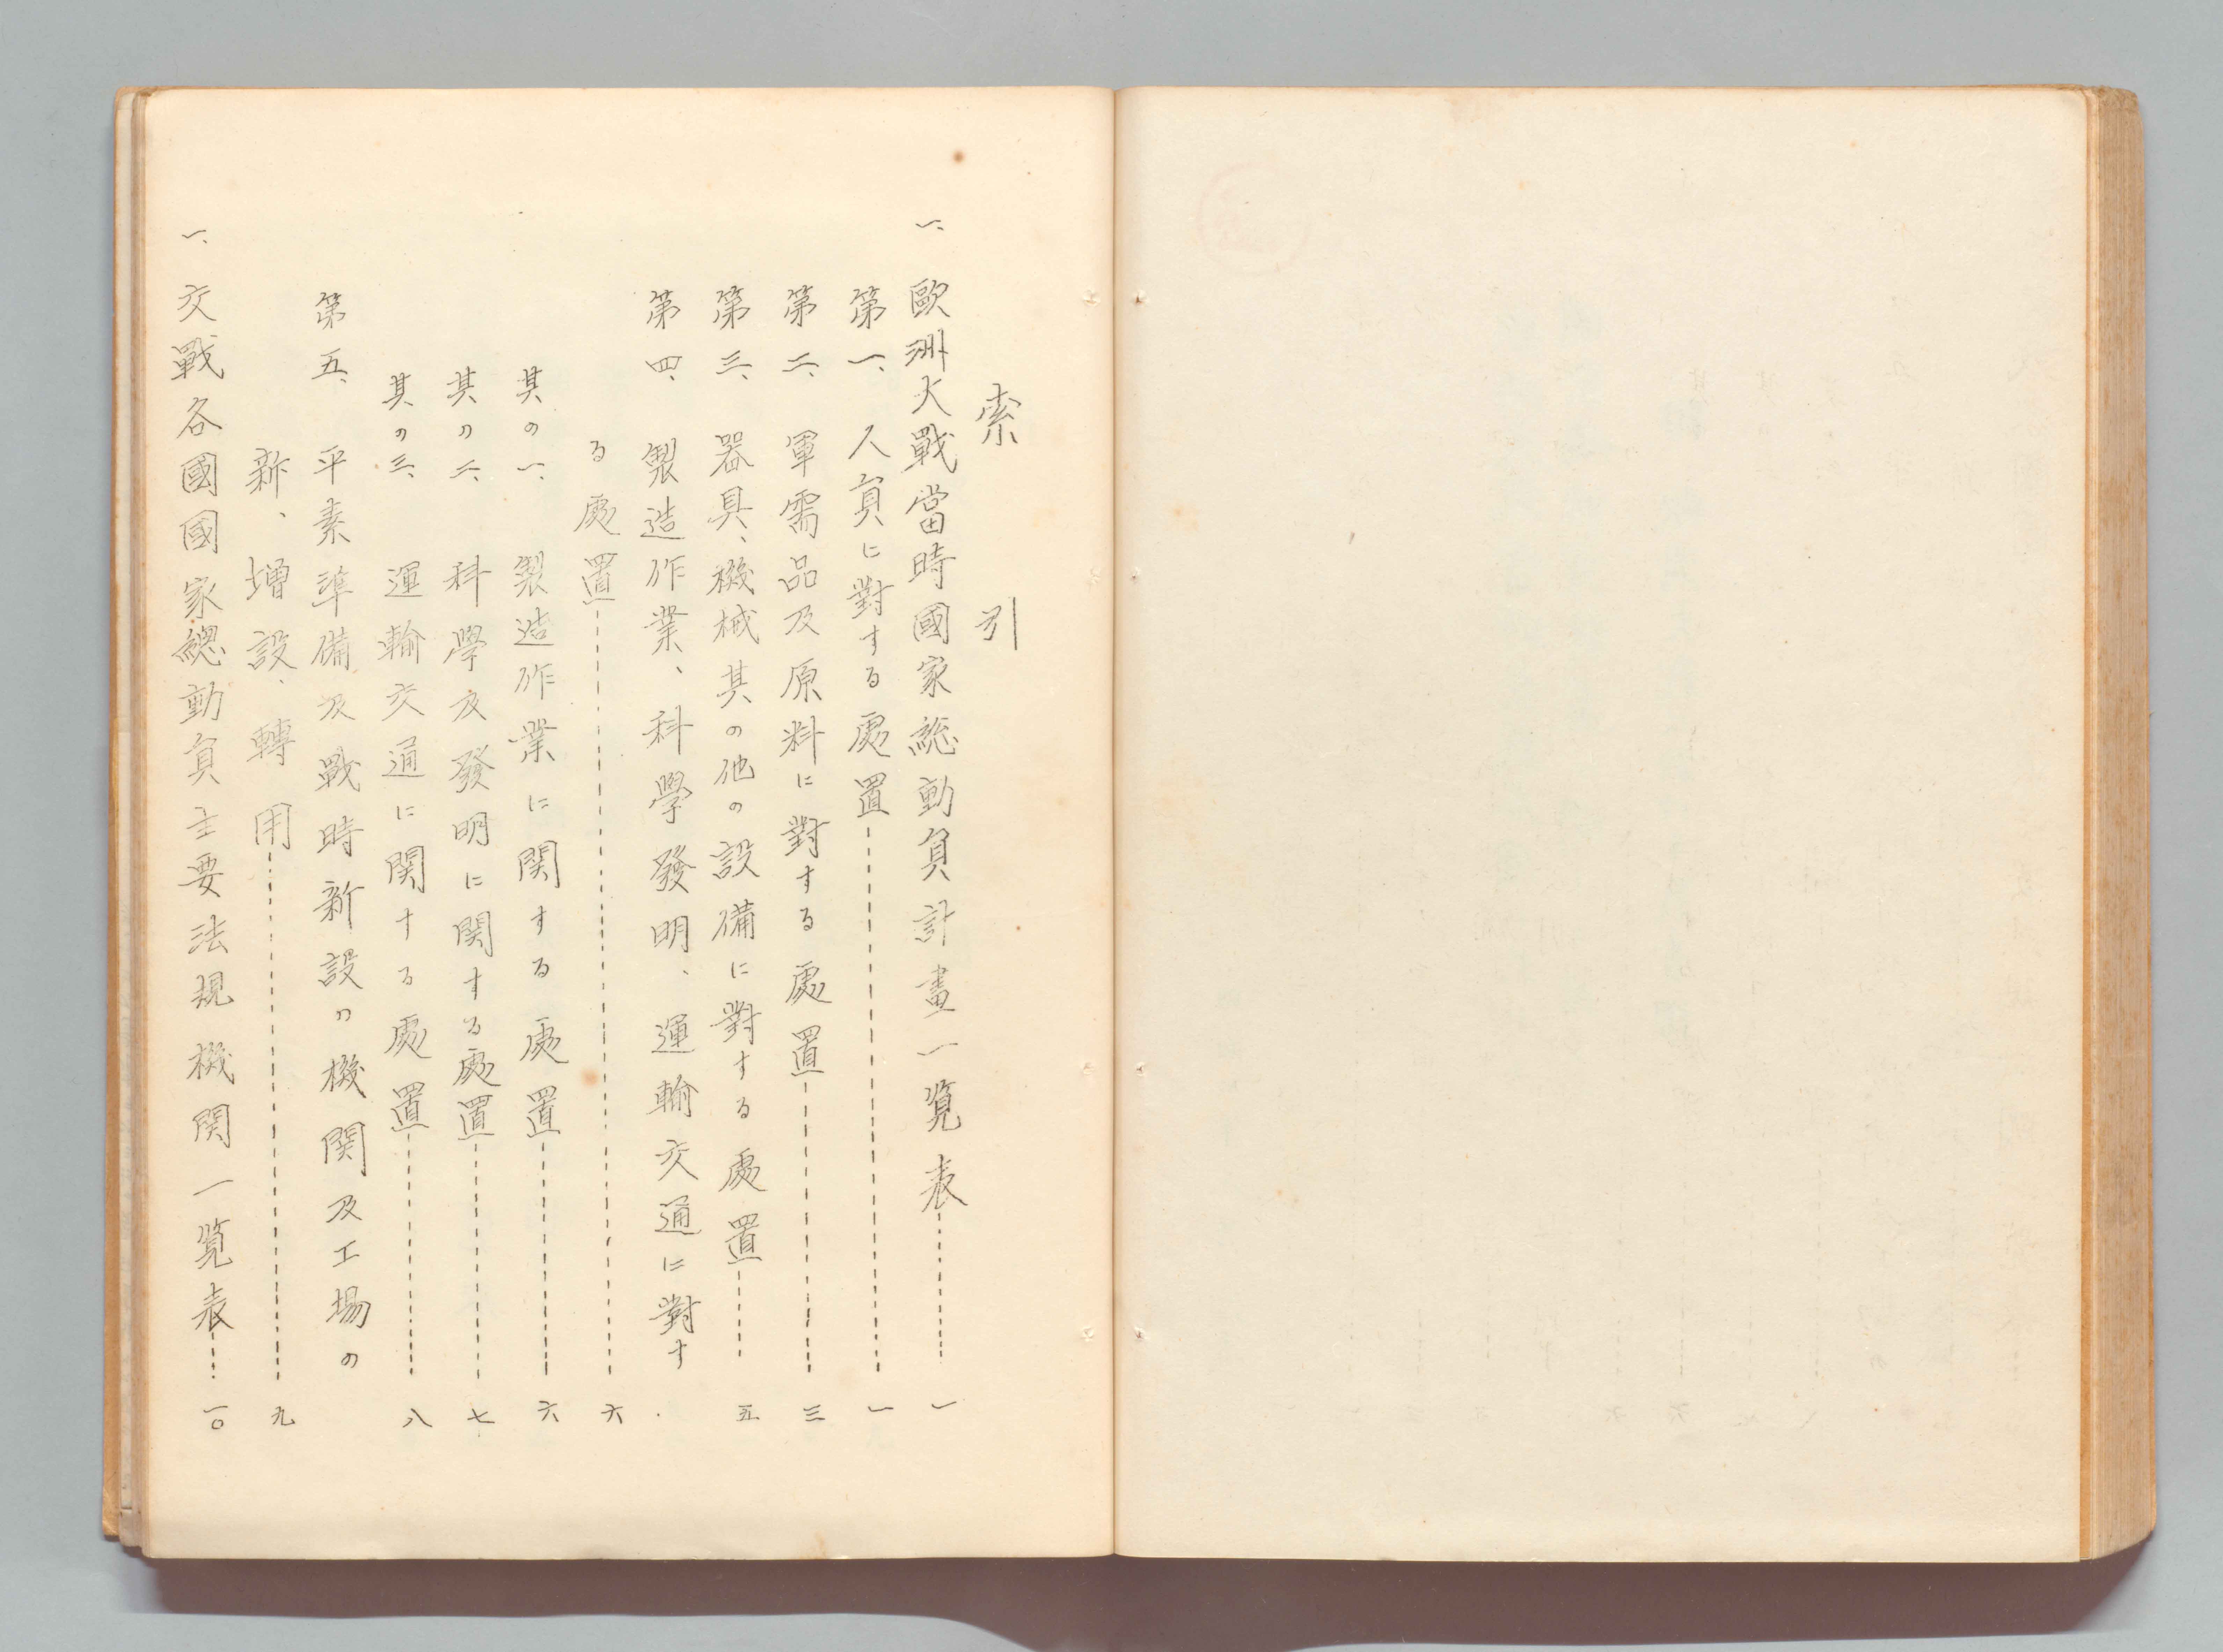 索引
一、歐洲大戰當時國家総動員計畫一覧表……一
第一、人員に對する處置……一
第二、軍需品及原料に對する處置……三
第三、器具、機械其の他の設備に對する處置……五
第四、製造作業、科學發明、運輸交通に對す
る處置……六
其の一、製造作業に関する處置……六
其の二、科學及發明に関する處置……七
其の三、運輸交通に関する處置……八
第五、平素準備及戰時新設の機関及工場の
新、増設、轉用……九
一、交戰各國國家總動員主要法規機関一覧表……一〇